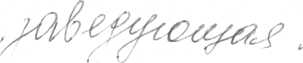 , заведующая .